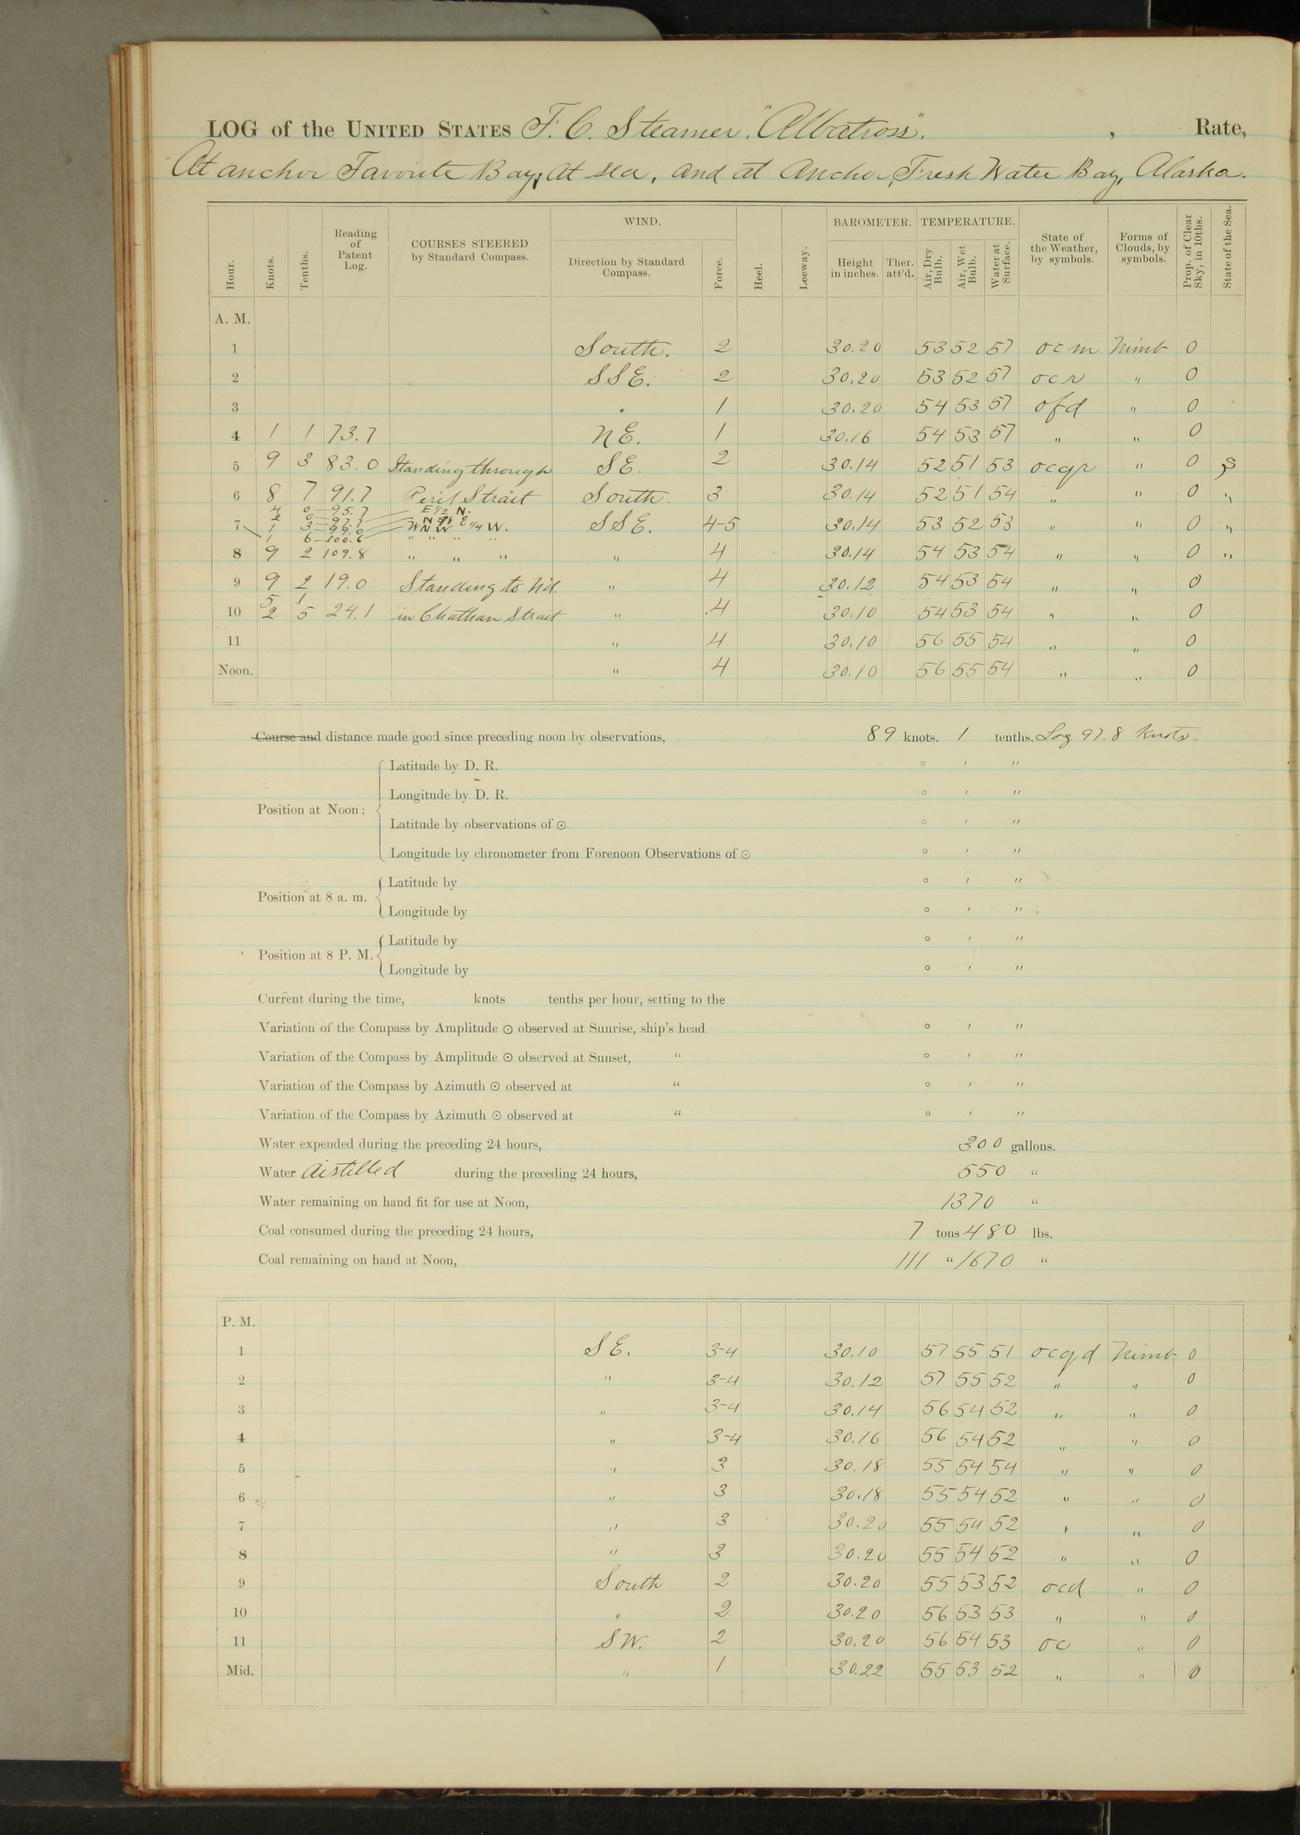 LOG of the UNITED STATES F. C. Steamer "Albatross". , Rate,
At anchor Favorite Bay, At sea, and at Anchor, Fresh Water Bay, Alaska.
WIND. BAROMETER. TEMPERATURE.
Hour. Knots. Tenths. Reading of Patent Log. COURSES STEERED by Standard Compass. Direction by Standard Compass. Force. Heel. Leeway. Height in inches. Ther. att'd. Air, Dry Bulb. Air, Wet Bulb. Water at Surface. State of the Weather, by symbols. Forms of Clouds, by symbols. Prop. of Clear Sky, in 10ths. State of the Sea.
A. M.
1 South. 2 30.20 53 52 57 ocm Nimb 0
2 SSE. 2 30.20 53 52 57 ocr " 0
3 " 1 30.20 54 53 57 ofd " 0
4 1 1 73.7 NE. 1 30.16 54 53 57 " " 0
5 9 3 83.0 Standing through SE. 2 30.14 52 51 53 ocqr " 0 S
6 8 7 91.7 Peril Strait South. 3 30.14 52 51 54 " " 0 "
4 0 95.7 E 1/2 N.
7 SSE. 4-5 30.14 53 52 53 " " 0 "
1 6 100.6 " " " "
8 9 2 109.8 " " " " 4 30.14 54 53 54 " " 0 "
9 9 2 19.0 Standing to N'd. " 4 30.12 54 53 54 " " 0
5 1
10 2 5 24.1 in Chathan Strait " 4 30.10 54 53 54 " " 0
11 " 4 30.10 56 55 54 " " 0
Noon. " 4 30.10 56 55 54 " " 0
Course and distance made good since preceding noon by observations, 89 knots. 1 tenths. Log 97.8 knots.
Latitude by D. R. ° ′ ″
Longitude by D. R. ° ′ ″
Position at Noon:
Latitude by observations of ☉ ° ′ ″
Longitude by chronometer from Forenoon Observations of ☉ ° ′ ″
Latitude by ° ′ ″
Position at 8 a. m.
Longitude by ° ′ ″
Latitude by ° ′ ″
Position at 8 P. M.
Longitude by ° ′ ″
Current during the time, knots tenths per hour, setting to the
Variation of the Compass by Amplitude ☉ observed at Sunrise, ship's head ° ′ ″
Variation of the Compass by Amplitude ☉ observed at Sunset, " ° ′ ″
Variation of the Compass by Azimuth ☉ observed at " ° ′ ″
Variation of the Compass by Azimuth ☉ observed at " ° ′ ″
Water expended during the preceding 24 hours, 300 gallons.
Water distilled during the preceding 24 hours, 550 "
Water remaining on hand fit for use at Noon, 1370 "
Coal consumed during the preceding 24 hours, 7 tons 480 lbs.
Coal remaining on hand at Noon, 111 " 1670 "
P. M.
1 SE. 3-4 30.10 57 55 51 ocqd Nimb 0
2 " 3-4 30.12 57 55 52 " " 0
3 " 3-4 30.14 56 54 52 " " 0
4 " 3-4 30.16 56 54 52 " " 0
5 " 3 30.18 55 54 54 " " 0
6 " 3 30.18 55 54 52 " " 0
7 " 3 30.20 55 54 52 " " 0
8 " 3 30.20 55 54 52 " " 0
9 South 2 30.20 55 53 52 ocd " 0
10 " 2 30.20 56 53 53 " " 0
11 SW. 2 30.20 56 54 53 oc " 0
Mid. " 1 30.22 55 53 52 " " 0